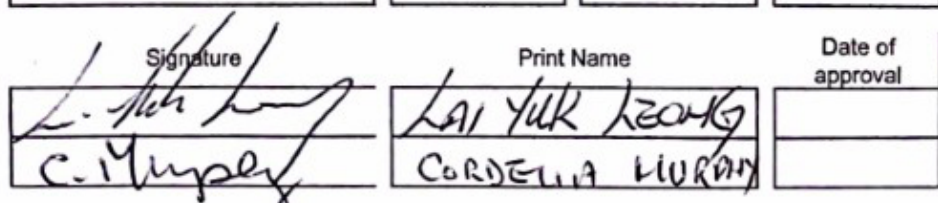 Signature Print Name Date of approval
L. Yuk Leong LAI YUK LEONG
C. Murphy CORDELIA MURPHY